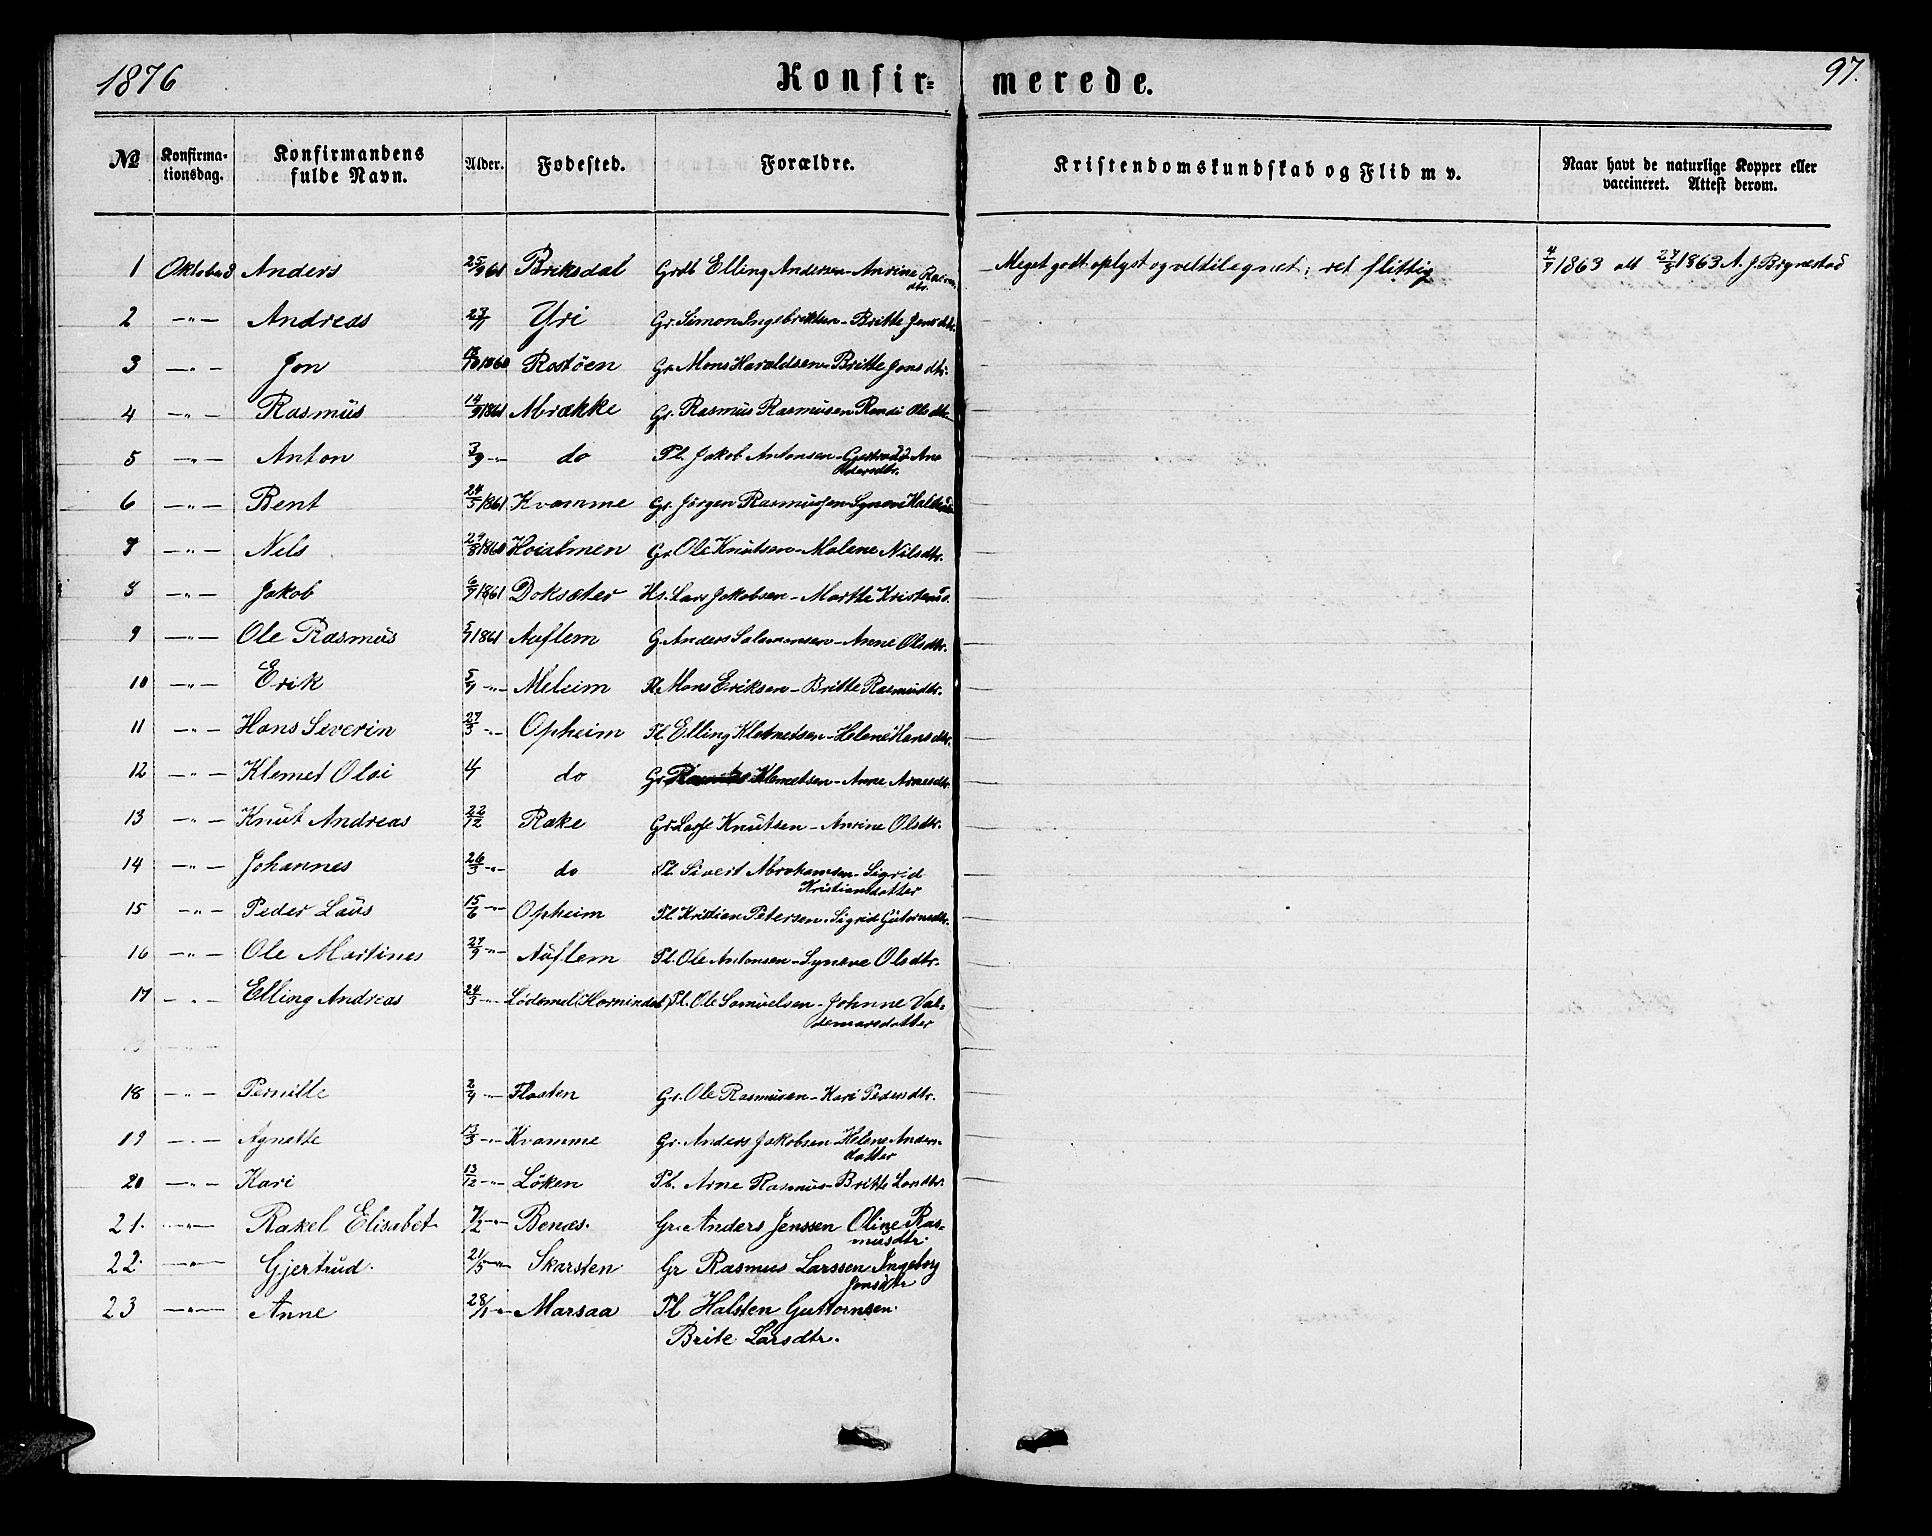 1876 Konfir= merede. 97.
№ Konfirma-tionsdag. Konfirmandens fulde Navn. Alder. Fødested. Forældre. Kristendomskundskab og Flid m v. Naar havt de naturlige Kopper eller vaccineret. Attest derom.
1 Oktober 8 Anders 25/9 61 Briksdal Grdb Elling Andersen - Anrine Rasm. dtr. Meget godt oplyst og vel tilegnet; ret flittig 4/7 1863 att 27/8 1863 A. J. Brynestad
2 -"- Andreas Yri Gr. Simon Ingebriktsen - Britte Jensdtr.
3 -"- Jon 1860 Rostöen Gr. Mons Haraldsen - Britte Jonsdtr.
4 -"- Rasmus 14/9 1861 Mrække Gr. Rasmus Rasmusen Randi Olsdtr.
5 -"- Anton 3/9 -"- do Pl. Jakob Antonsen - Gjertrud
6 -"- Bent 24/5 1861 Kvamme Gr. Jörgen Rasmussen Synove
7 -"- Nels 1860 Gr. Ole Knutsen - Malene Nilsdtr.
8 -"- Jakob 6/7 1861 Doksæter Hs. Lars Jakobsen - Marthe
9 -"- Ole Rasmus 1861 Auflem G. Anders Salamonsen - Anne Olsdtr.
10 -"- Erik -"- Meleim Pl. Mons Eriksen - Britte Rasmusdtr.
11 -"- Hans Severin 27/3 -"- Opheim Pl. Elling Klemetsen - Helene Hansdtr.
12 -"- Klemet Olai do Gr. Klemetsen - Anne
13 -"- Knut Andreas 22/12 Rake Gr. Knutsen - Anrine Olsdtr.
14 -"- Johannes 26/3 -"- do Pl. Sivert Abrahamsen - Sigrid
Kristiansdatter
15 -"- Peder Laus 15/6 -"- Opheim Pl. Kristian Petersen - Sigrid Gutormsdtr.
16 -"- Ole Martines -"- Auflem Pl. Ole Antonsen - Synove Olsdtr.
17 -"- Elling Andreas 24/3 -"- Lödemel (Hornindal) Pl. Ole Samuelsen - Johnne Val-
demarsdatter
18 -"- Pernille -"- Floten Gr. Ole Rasmusen - Kari Pedersdtr.
19 -"- Agnette 13/3 -"- Kvamme Gr. Anders Jakobsen Helene Anders-
datter
20 -"- Kari 13/12 -"- Löken Pl. Arne Rasmus- Britte
21. -"- Rakel Elisabet 7/2 -"- Benæs. Gr. Anders Jenssen Oline Ras-
musdtr.
22. -"- Gjertrud. 21/5 -"- Skarsten Gr Rasmus Larssen Ingeborg
Jonsdtr
23 -"- Anne 28/1 -"- Marsaa Pl Halsten Guttormsen.
Brite Larsdtr.